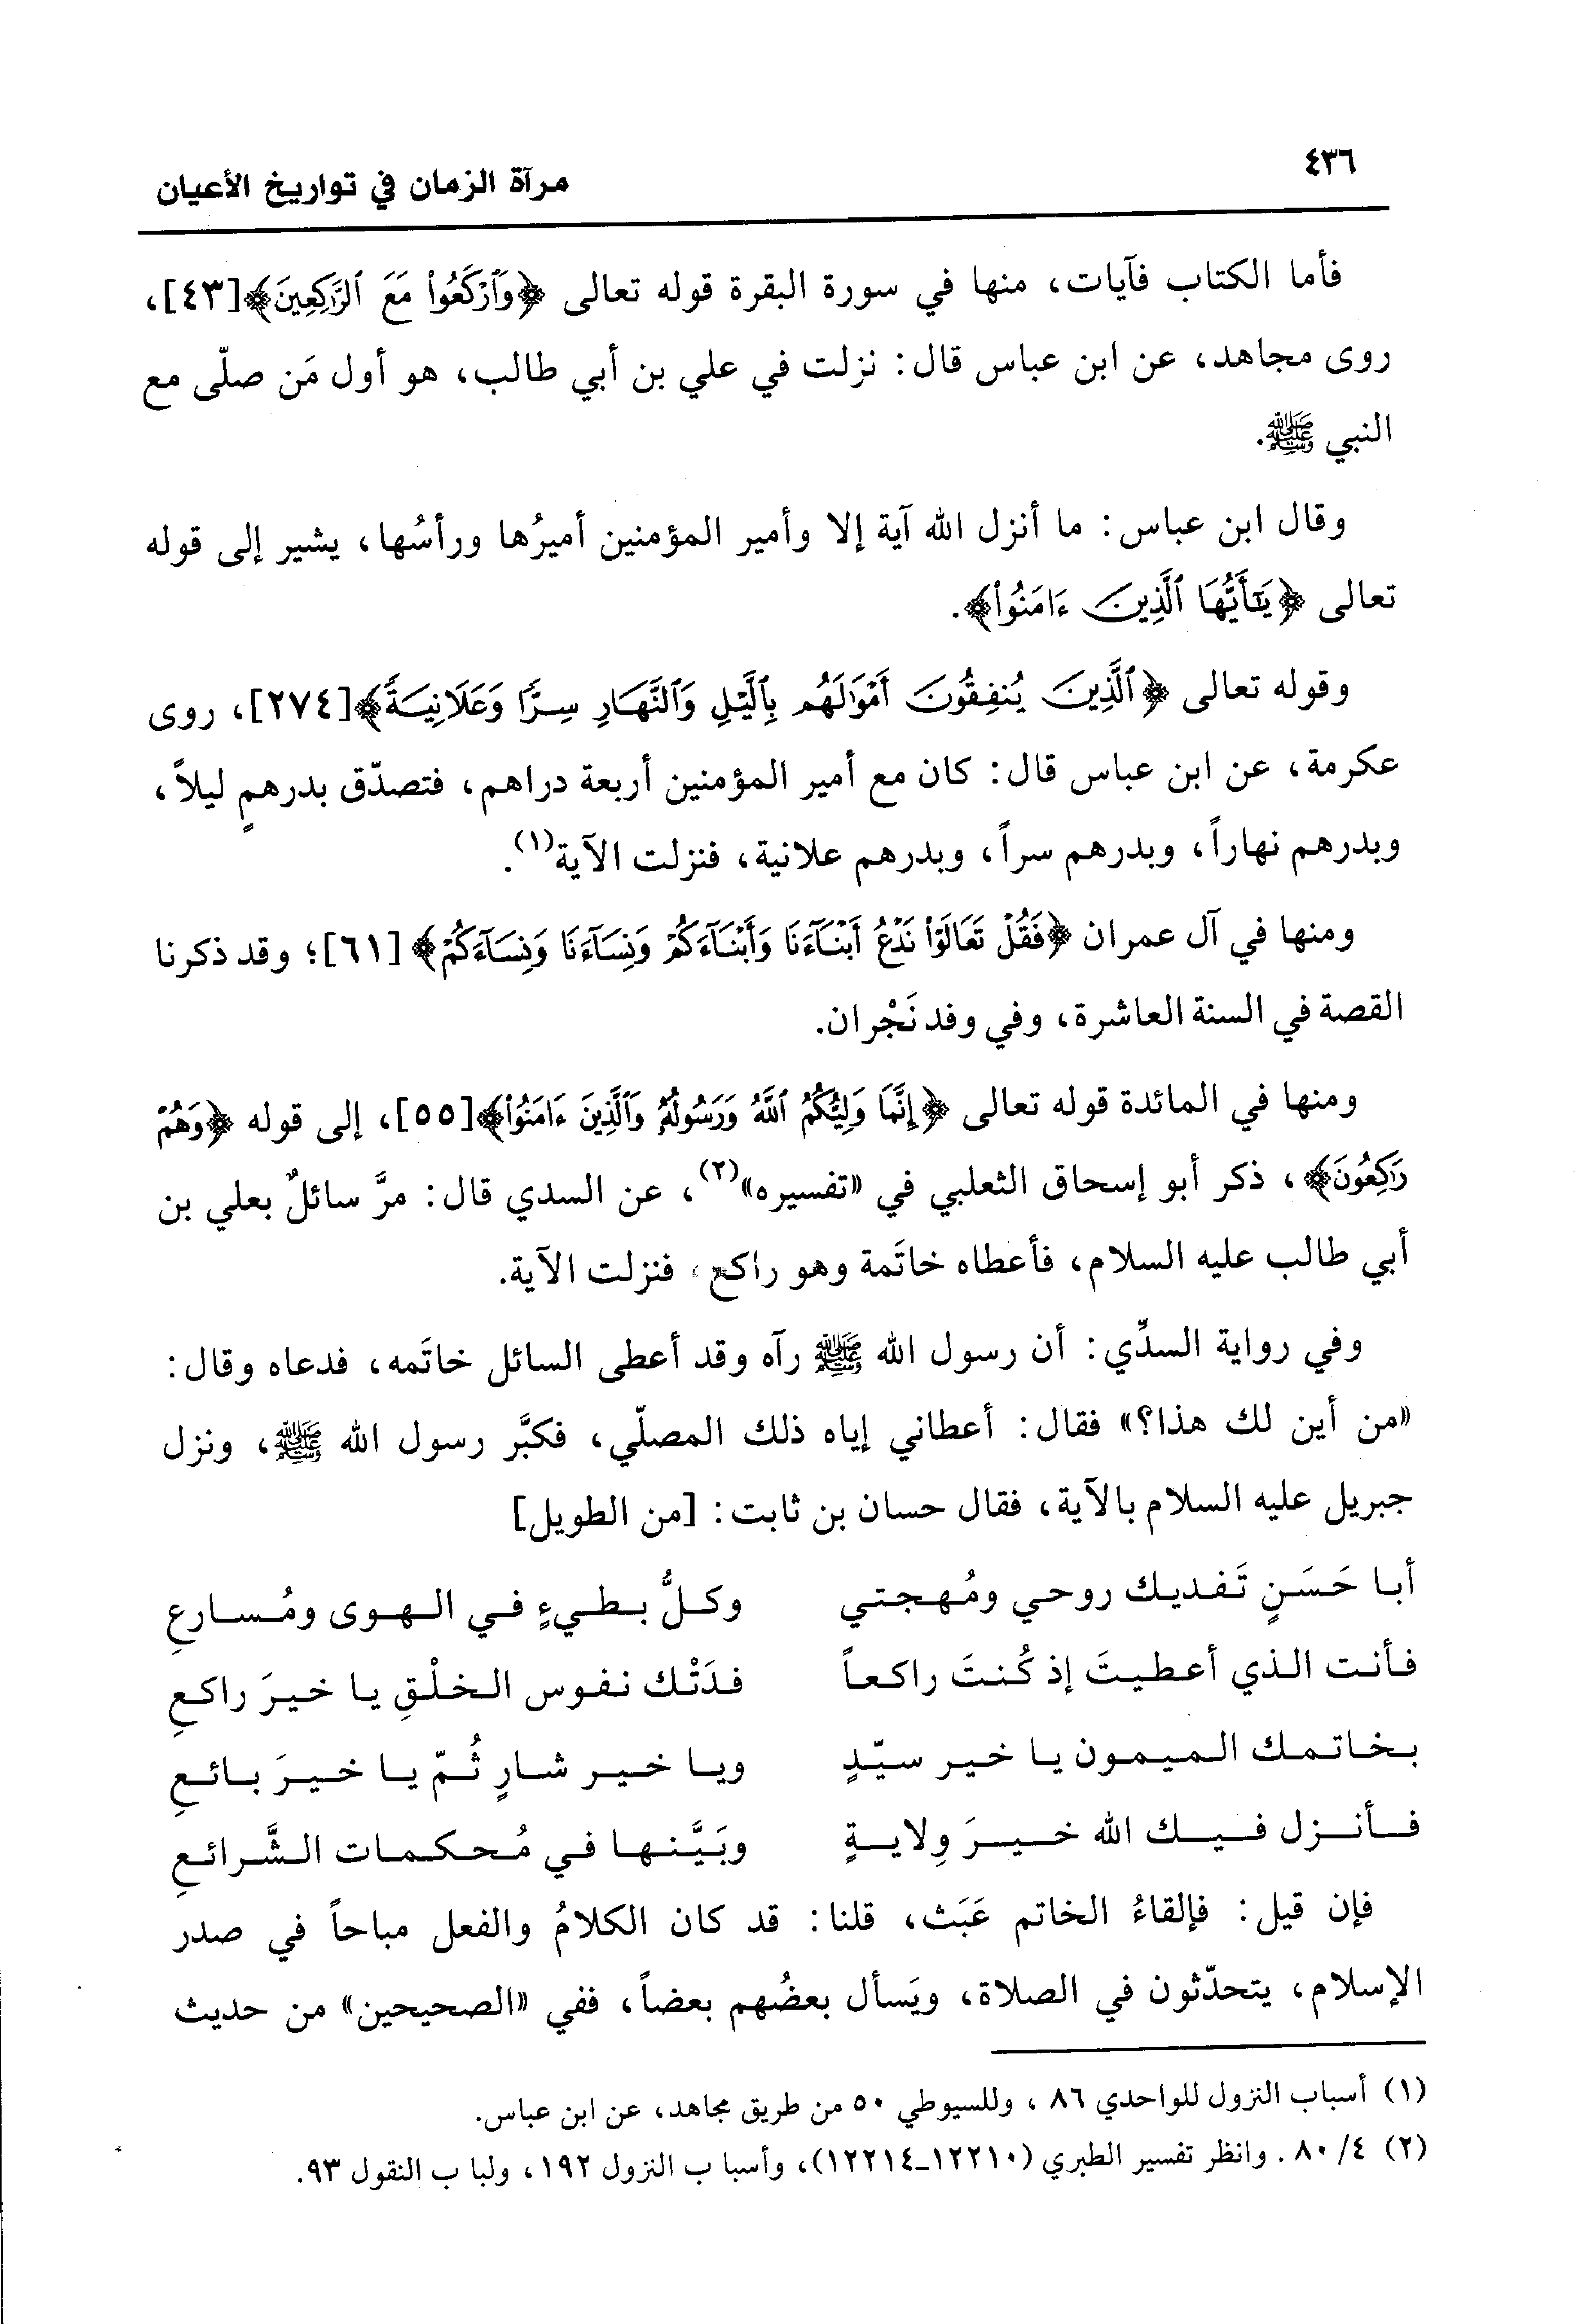 ٤٣٦
مرآة الزمان في تواريخ الأعيان
فأما الكتاب فآيات، منها في سورة البقرة قوله تعالى ﴿وَٱرۡكَعُواْ مَعَ ٱلرَّٰكِعِينَ﴾[٤٣]،
روى مجاهد، عن ابن عباس قال: نزلت في علي بن أبي طالب، هو أول مَن صلّى مع
النبي ﷺ.
وقال ابن عباس: ما أنزل الله آية إلا وأمير المؤمنين أميرُها ورأسُها، يشير إلى قوله
تعالى ﴿يَٰٓأَيُّهَا ٱلَّذِينَ ءَامَنُواْ﴾.
وقوله تعالى ﴿ٱلَّذِينَ يُنفِقُونَ أَمۡوَٰلَهُم بِٱلَّيۡلِ وَٱلنَّهَارِ سِرّٗا وَعَلَانِيَةٗ﴾[٢٧٤]، روى
عكرمة، عن ابن عباس قال: كان مع أمير المؤمنين أربعة دراهم، فتصدّق بدرهمٍ ليلاً،
وبدرهم نهاراً، وبدرهم سراً، وبدرهم علانية، فنزلت الآية(١).
ومنها في آل عمران ﴿فَقُلۡ تَعَالَوۡاْ نَدۡعُ أَبۡنَآءَنَا وَأَبۡنَآءَكُمۡ وَنِسَآءَنَا وَنِسَآءَكُمۡ﴾ [٦١]؛ وقد ذكرنا
القصة في السنة العاشرة، وفي وفد نَجْران.
ومنها في المائدة قوله تعالى ﴿إِنَّمَا وَلِيُّكُمُ ٱللَّهُ وَرَسُولُهُۥ وَٱلَّذِينَ ءَامَنُواْ﴾[٥٥]، إلى قوله ﴿وَهُمۡ
رَٰكِعُونَ﴾، ذكر أبو إسحاق الثعلبي في «تفسيره»(٢)، عن السدي قال: مرَّ سائلٌ بعلي بن
أبي طالب عليه السلام، فأعطاه خاتَمة وهو راكع، فنزلت الآية.
وفي رواية السدِّي: أن رسول الله ﷺ رآه وقد أعطى السائل خاتَمه، فدعاه وقال:
«من أين لك هذا؟» فقال: أعطاني إياه ذلك المصلّي، فكبَّر رسول الله ﷺ، ونزل
جبريل عليه السلام بالآية، فقال حسان بن ثابت: [من الطويل]
أبا حَسَنٍ تَفديك روحي ومُهجتي وكلُّ بطيءٍ في الهوى ومُسارعِ
فأنت الذي أعطيتَ إذ كُنتَ راكعاً فدَتْك نفوس الخلْقِ يا خيرَ راكعِ
بخاتمك الميمون يا خير سيّدٍ ويا خير شارٍ ثُمّ يا خيرَ بائعِ
فأنزل فيك الله خيرَ وِلايةٍ وبَيَّنها في مُحكمات الشَّرائعِ
فإن قيل: فإلقاءُ الخاتم عَبَث، قلنا: قد كان الكلامُ والفعل مباحاً في صدر
الإسلام، يتحدّثون في الصلاة، ويَسأل بعضُهم بعضاً، ففي «الصحيحين» من حديث
(١) أسباب النزول للواحدي ٨٦ ، وللسيوطي ٥٠ من طريق مجاهد، عن ابن عباس.
(٢) ٤/ ٨٠ . وانظر تفسير الطبري (١٢٢١٠_١٢٢١٤)، وأسبا ب النزول ١٩٢، ولبا ب النقول ٩٣.